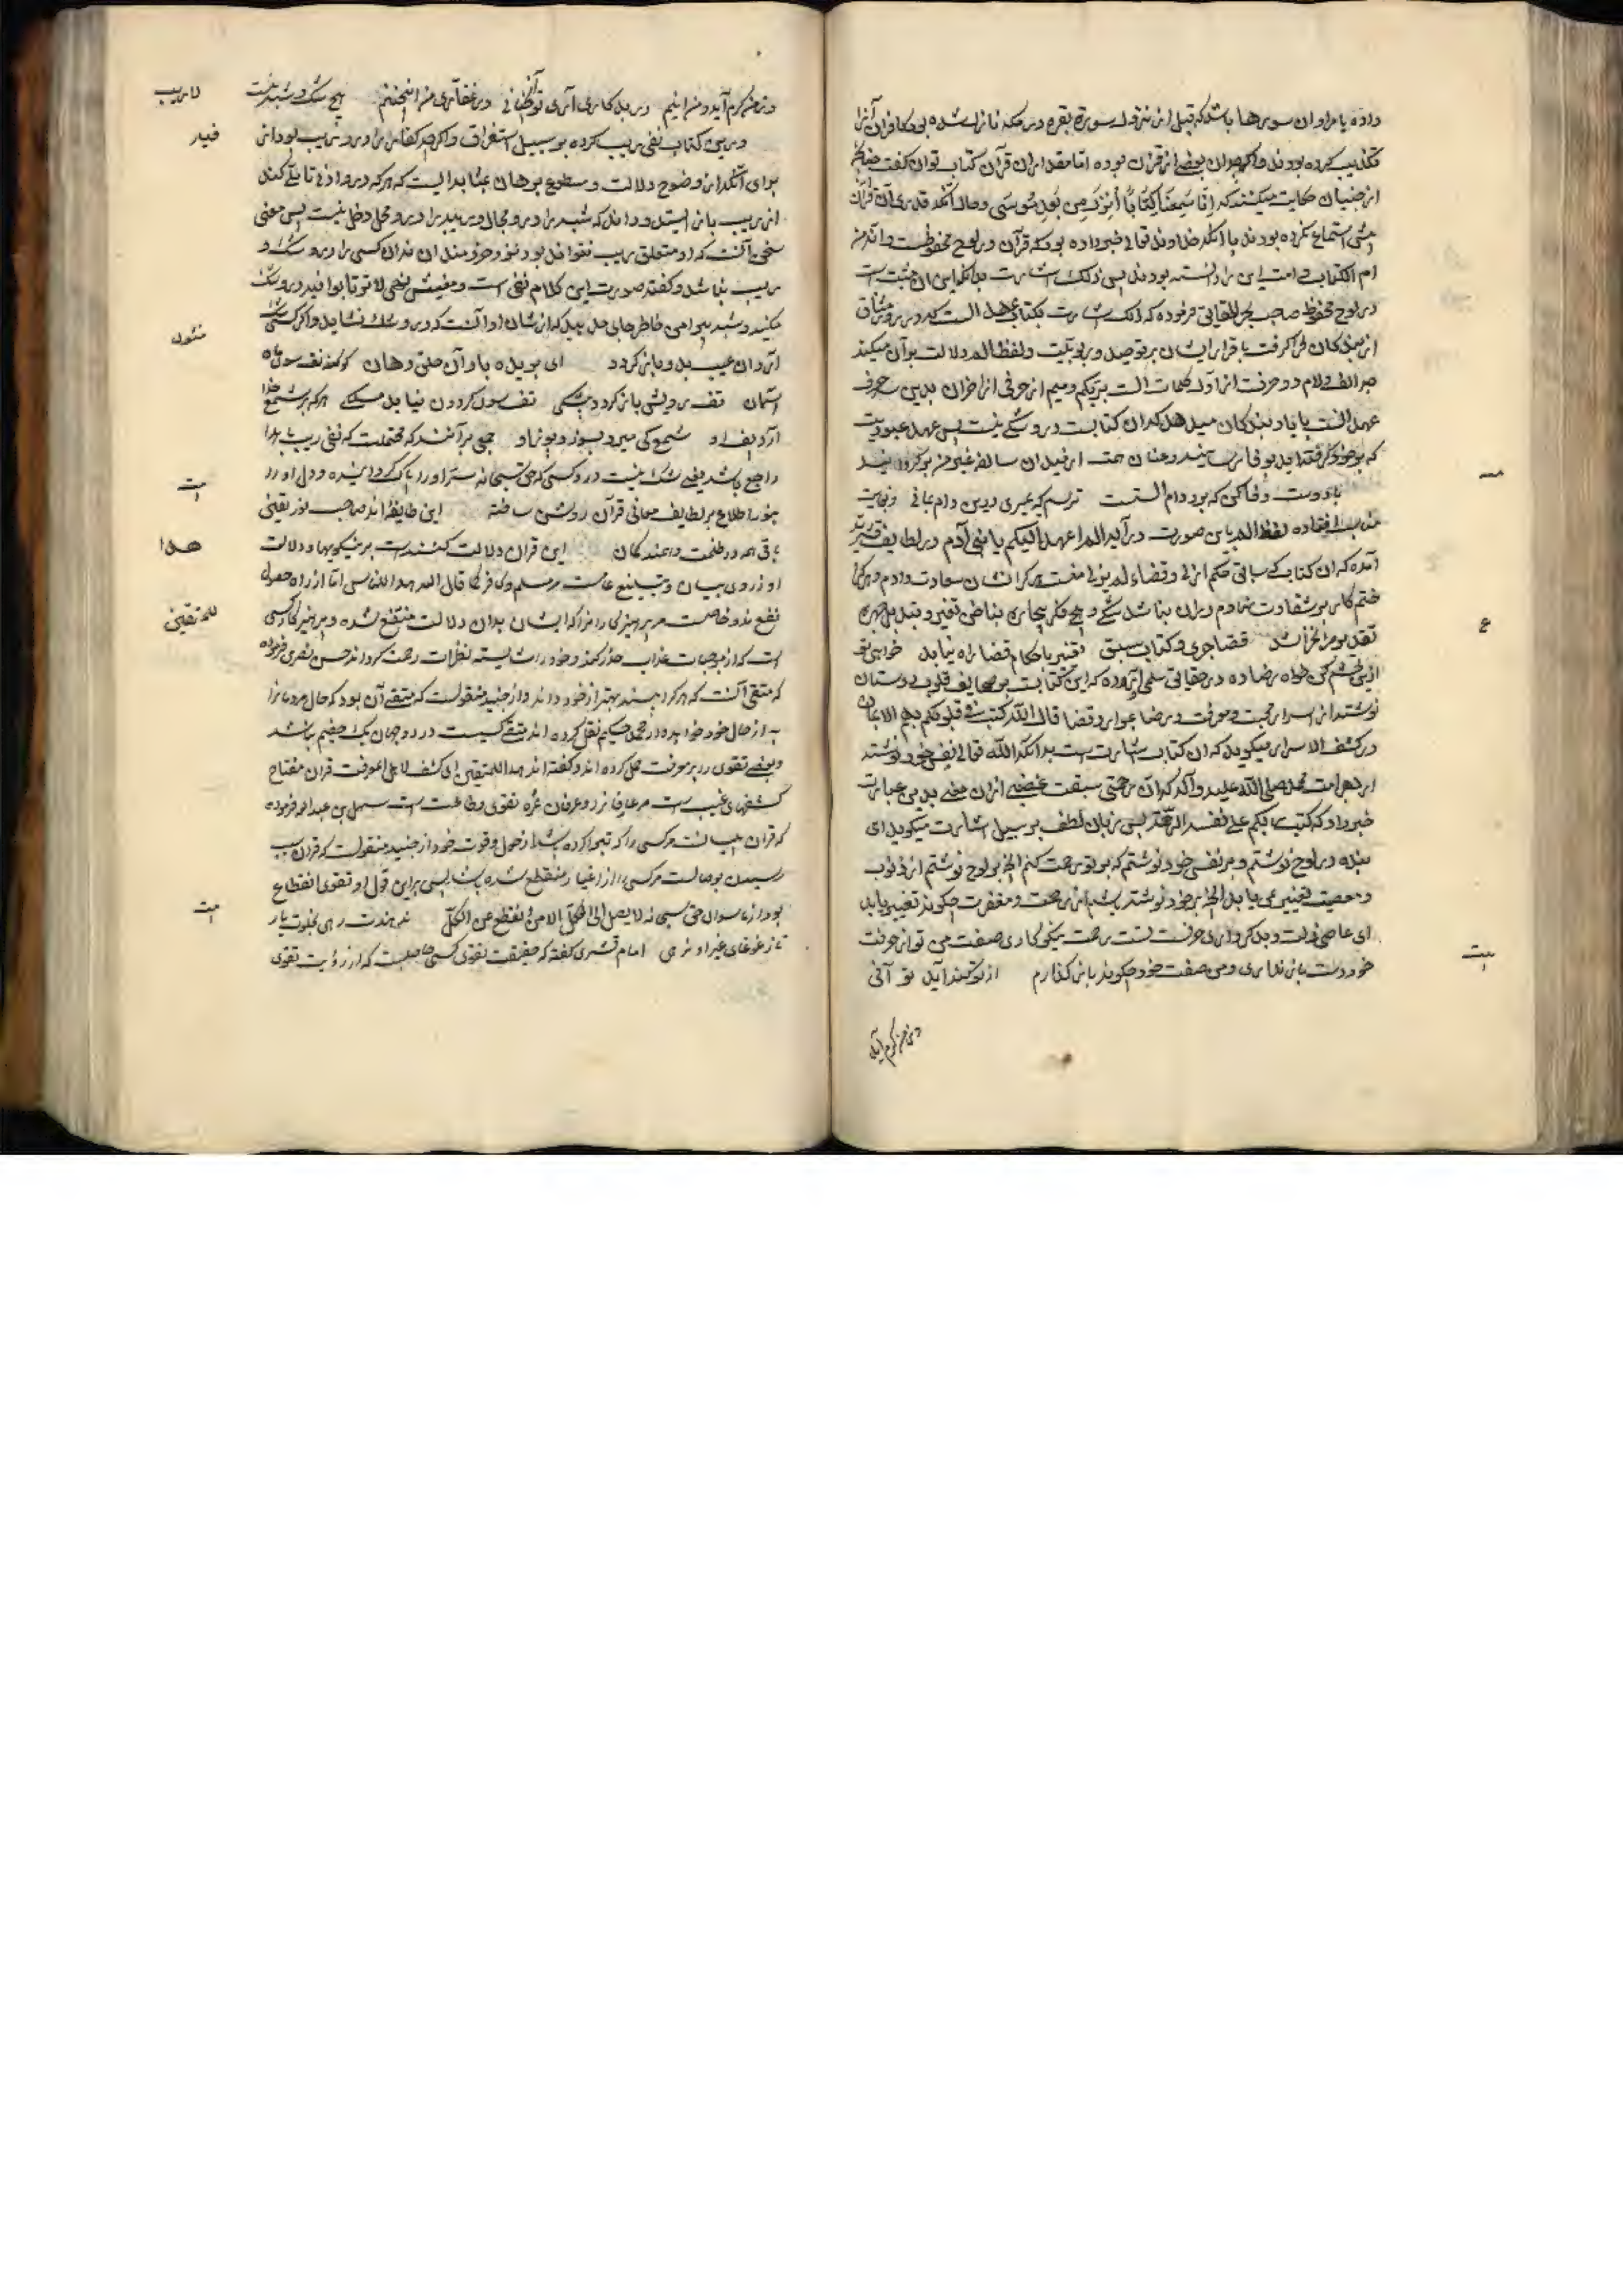 داده یا مراد ان سورها باشد که قبل از نزول سورة بقره در مکه نازل شده بود کافران آنرا
تکذیب کرده بودند و اگرچه ان بعضی از قرآن بوده اما بعض از قرآن کتاب توان گفت چنانکه
از جنیان حکایت میکنند که اِنّا سَمِعنَا کِتَابًا اُنزِلَ مِن بَعدِ مُوسی و حال آنکه قدری از قرآن
استماع کرده بودند یا آنکه خداوند تعالی خبر داده بود که قرآن در لوح محفوظست و انه فی
ام الکتاب و امت این را دانسته بودند پس ذلک اشارت بدانکه این ان مثبت است
در لوح محفوظ صاحب بحر الحقایق فرموده که ذلک اشارت بکتاب عهد الست که در روز میثاق
از بندکان فرا گرفت باقرار ایشان بر توحید و ربوبیت و لفظ الم دلالت بر آن میکند
چه الف و لام دو حرفست از اول کلمات الست بربکم و میم از حرفی از اخر ان بدین حروف
عهد الست یا یاد بندکان میدهد که ان کتابست درو شکی نیست پس عهد عبودیت
که بر خود گرفته‌اید بوفا رسانید و عنان همت از میدان سالفه غیر من بگردانید
با دوست وفا کن که بود دام الست ترسم که بمیری درین دام بمانی و نهایت
مناسب افتاده لفظ الم باین صورت در آیه الم اعهد الیکم یا بنی آدم و در لطایف قشیری
آمده که ان کتاب سابق حکم ازلی و قضاء لم یزلی منست هر کرا نشان سعادت دادم و هر کرا
ختم کار بر شقاوت نهادم در ان نباشد شکی و هیچ فکر بیچاره بیاض تغیر و تبدیل چهره
تقدیر مرا نخراشد قضا جری و کتاب سبق تغییر باحکام قضا راه نیابد خواهی تو
ازین خشم کن خواه رضا ده در حقایق سلمی آورده که این کتابت بر صحایف قلوب دوستان
نوشته از اسرار محبت و معرفت و رضا بموارد قضا قال الله کتب فی قلوبهم الایمان
در کشف الاسرار میکوید که ان کتاب اشارت است بدانکه الله تعالی بنفس خود نوشته
از بهر امت محمد صلی الله علیه و آله که ان رحمتی سبقت غضبی ازان معنی بدین عبارت
خبر داد که کتب ربکم علی نفسه الرحمة پس بزبان لطف بر سبیل اشارت میکوید ای
بنده در لوح نوشتم و بر نفس خود نوشتم که بر تو رحمت کنم الخ بر لوح نوشتم از ذنوب
و معصیت تغییر می یابد الخ بر خود نوشته باشم از رحمت و مغفرت چکونه تغییر یابد
ای عاصی ذلت و بد کرداری حرفت تست رحمت نیکوکاری صفت من تو از حرفت
خود دست باز نداری و من صفت خود چکونه باز کذارم از تو کنه آید تو آنی
در من کرم آید
در من کرم آید و من اینم در بدکاری آری توآنچنانی در غفاری من اینچنینم هیچ شک و شبه نیست
لا ریب
درین کتاب نفی ریب کرده بر سبیل استغراق و اگرچه کفار را درو ریب بود از
فیه
برای آنکه از وضوح دلالت و سطوع برهان بمثابه ایست که هر که درو ادنی تاملی کند
از ریب باز ایستد و داند که شبه را درو مجال و ریبه را درو محل دخل نیست پس معنی
سخن آنست که او متعلق ریب نتواند بود نه و خردمند ان نداند کسی را درو شک و
ریب نباشد و گفته صورت این کلام نفی است و معنیش نهی لا ترتابوا فیه درو شک
مکنید و شبه پیرامن خاطر جای مدهید که از شان او آنست که درو شک نشاید و اگر کسی شک
آرد ان عیب بدو باز کردد ای بریده باد آن حلق و دهان کو کند تف سوی ماه
مثنوی
آسمان تف برویش باز کردد بیشکی تف سوی کردون نیابد مسلکی هر که بر شمع خدا
آرد پف او شمع کی میرد بسوزد پوز او جمعی بر آنند که محتملست که نفی ریب بهدا
راجع باشد یعنی شک نیست در و کسی که حق سبحانه سر او را پاک گردانیده و دل او را
بنور اطلاع بر لطایف معانی قرآن روشن ساخته این طایفه اند صاحب نور یقین
بیت
باقی همه در ظلمت و همند کمان این قران دلالت کننده است بر نیکویها و دلالت
هدا
او از روی بیان و تبلیغ عامست مر مسلم و کافر کما قال الله هدا للناس اما از راه حصول
نفع نه و خاصست مر پرهیزکار را زیرا که ایشان بدان دلالت منتفع شده و پرهیزکار کسی
للمتقین
است که از موجبات عذاب حذر کند و خود را شایسته نظرات رحمت کرداند حسن بصری فرموده
که متقی آنست که هر کرا بیند بهتر از خود داند و از جنید منقولست که متقی آن بود که حال مردمانرا
به از حال خود خواهد و از محمد حکیم نقل کرده اند متقی کیست در دو جهان یک خصم نباشد
و بعضی تقوی را بر معرفت حمل کرده اند و گفته اند هدا للمتقین ای کشف لاهل المعرفت قران مفتاح
کشفهای غیب است مر عارفانرا و عرفان ثمره تقوی و طاعت است سهل بن عبد الله فرموده
که قران بیانست مر کسی را که تبرا کرده باشد از حول و قوت خود از جنید منقولست که قران سبب
رسیدن بوصالست مر کسی را از اغیار منقطع شده باشد پس براین قول او تقوی انقطاع
بود از ماسوای حق سبحانه لا یصل الی الکل الا من انقطع عن الکل ندهندت رهی بخلوت یار
بیت
تا ز غوغای غیر او نرهی امام قشیری گفته که حقیقت تقوی کسی حاصلست که از رؤیت تقوی